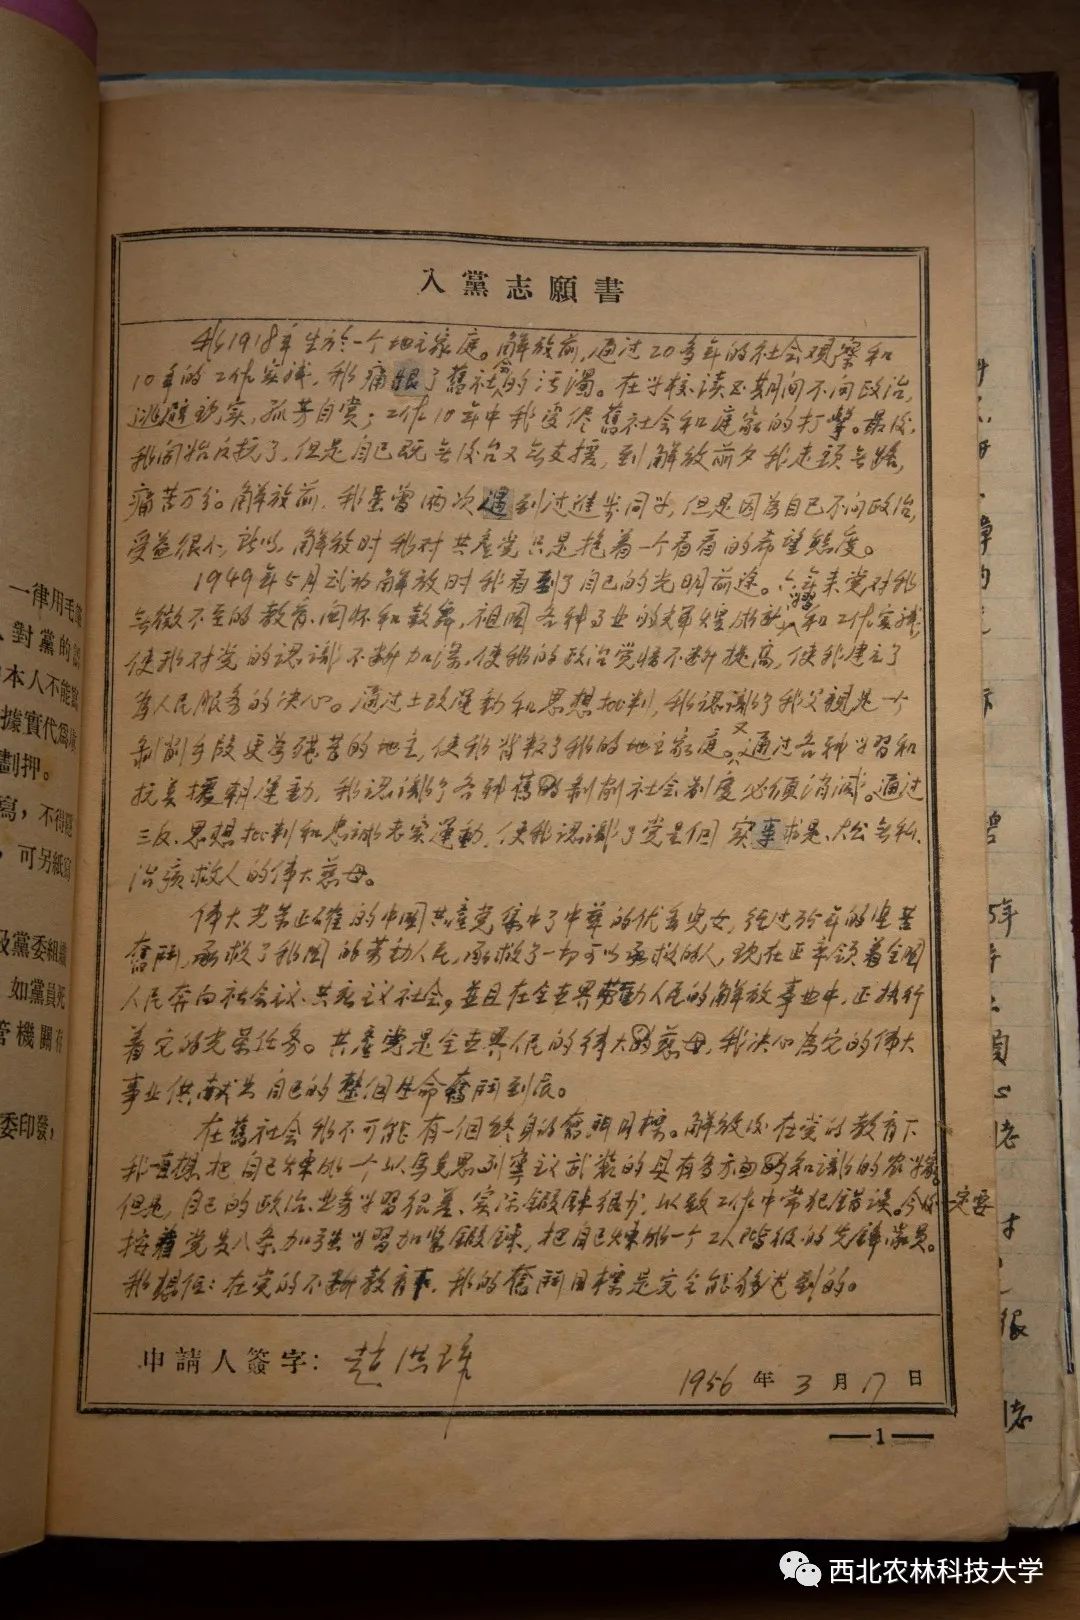 一律用毛
對黨的
本人不能
據實代爲
劃押。
寫，不得
可另紙
級黨委組織
如黨員死
管機關
委印發，
入黨志願書
我1918年生於一个地主家庭。解放前，通过20多年的社会观察和
10年的工作实踐，我痛恨了舊社会的污濁。在学校读书期间不问政治，
逃避现实，孤芳自赏；工作10年中我受尽舊社会和庭家的打擊。最後，
我開始反抗了，但是自己既無後台又無支援，到解放前夕我走頭無路，
痛苦万分。解放前，我虽曾两次遇到过進步同学，但是因為自己不问政治，
受益很小，所以，解放时我对共產党只是抱着一个看看的希望態度。
1949年5月武功解放时我看到了自己的光明前途。六年来党对我
無微不至的教育、関怀和鼓舞，祖國各种事业的輝煌成就，学習和工作实踐，
使我对党的認識不断加深，使我的政治觉悟不断提高，使我建立了
为人民服务的决心。通过土改運動和思想批判，我認識了我父親是一个
剝削手段更为殘苦的地主，使我背叛了我的地主家庭。又通过各种学習和
抗美援朝運動，我認識了各种舊的剝削社会制度必須消滅。通过
三反、思想批判和忠誠老实運動，使我認識了党是個实事求是、大公無私、
治病救人的偉大慈母。
偉大光荣正確的中國共產党集中了中華的优秀兒女，经过35年的堅苦
奮鬥，承救了我國的劳动人民，承救了一切可以承救的人，现在正率领着全國
人民奔向社会主义、共產主义社会。並且在全世界劳動人民的解放事业中，正执行
着它的光荣任务。共產党是全世界人民的偉大的慈母，我决心為它的偉大
事业供献出自己的整個生命奮鬥到底。
在舊社会我不可能有一個终身的奮鬥目標。解放後在党的教育下
我一直想把自己煉成一个以馬克思列寧主义武裝的具有多方面的知識的農学家。
但是，自己的政治、业务学習很差、实际鍛鍊很少，以致工作中常犯错误。今後一定要
按着党员八条加强学習加紧鍛鍊，把自己煉成一个工人階級的先鋒党員。
我想信：在党的不断教育下，我的奮鬥目標是完全能够达到的。
申請人簽字：趙洪璋
1956年3月17日
1
西北农林科技大学